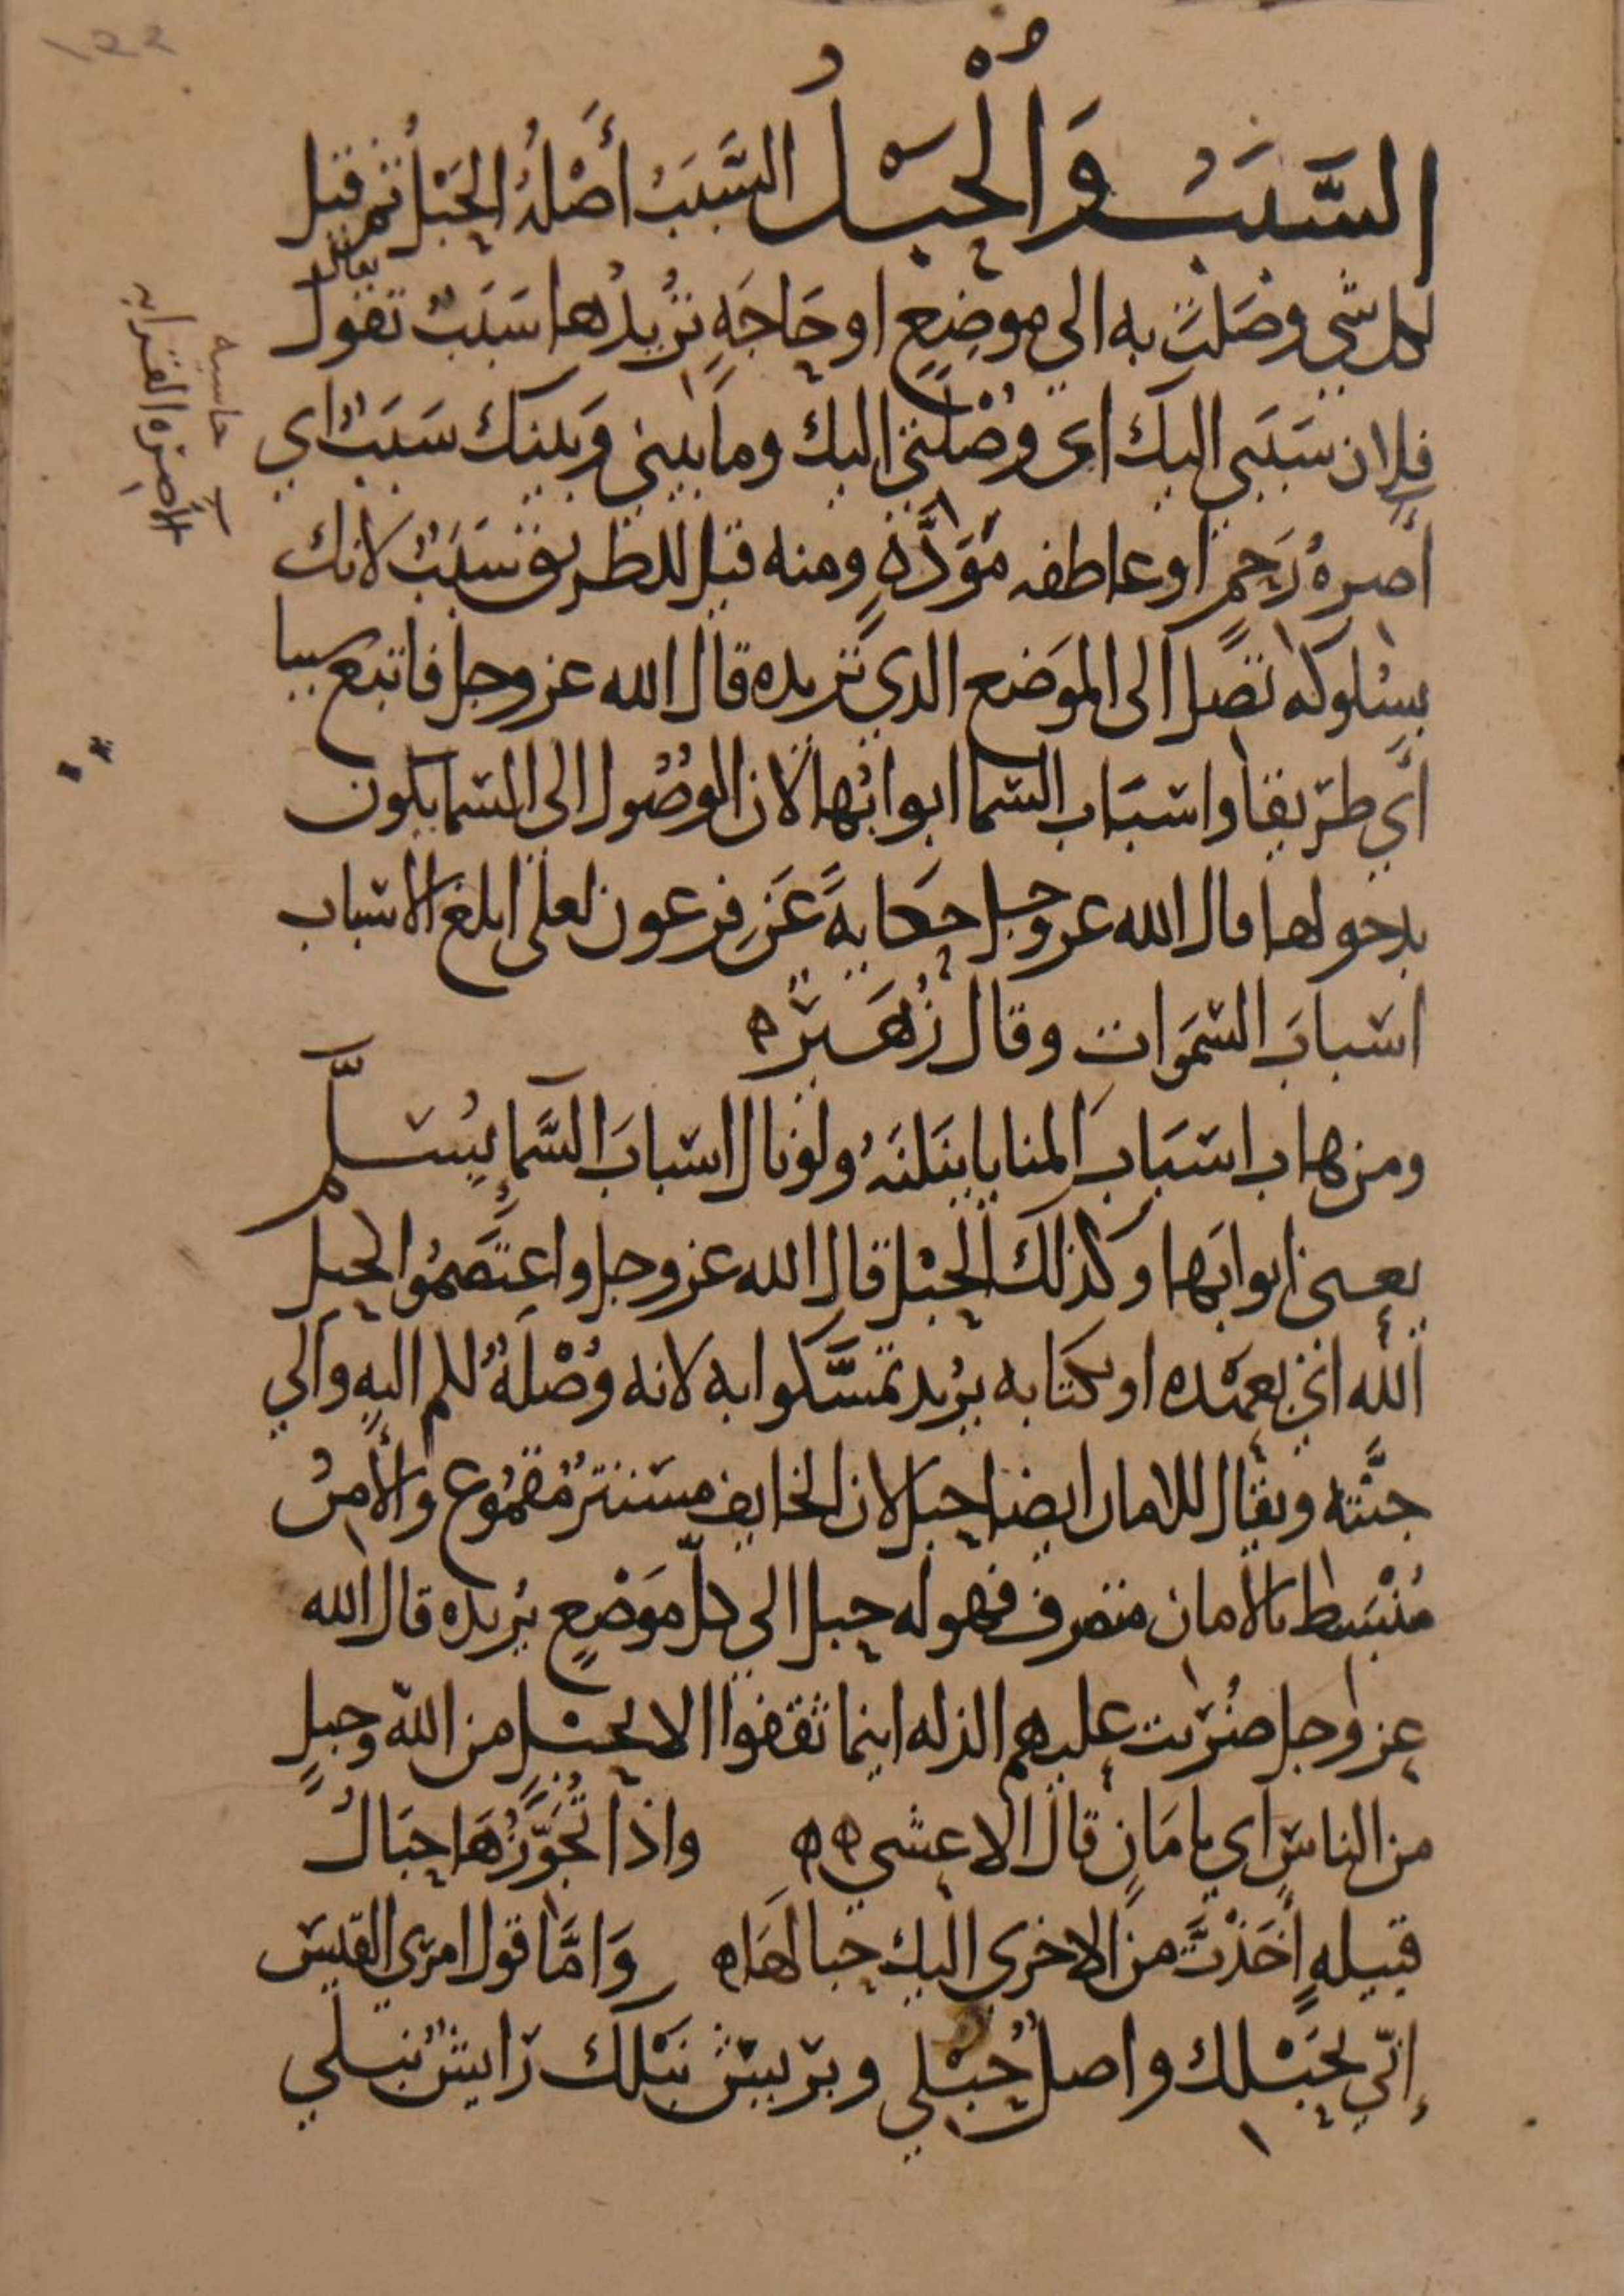 السَّبَبُ وَالْحَبْلُ السَّبَبُ أَصْلُهُ الحَبْلُ ثم قيل
لكل شي وصَلتَ به الى موضِعٍ او حَاجَةٍ تُريدُها سَبَبٌ تقول
يقال
فلان سَبَبي اليك اي وُصْلَتي اليك وما بيني وَبينك سَبَبٌ اي
أَصِرهُ رَحِمٍ او عاطفه مَوَدَّةٍ ومنه قيل للطريق سَبَبٌ لانك
بسُلوكه تصل الى الموَضع الذي تريده قال الله عز وجل فاتبع سببا
اي طريقا واسبَاب السما ابوابُها لان الوصُول الى السما يكون
بدخولها قال الله عز وجل حكايةً عَن فرعون لعلى ابلغ الاسباب
اسبابَ السَّمَوات وقال زُهَير ه
ومن هاب اسبَابَ المنايا ينَلنَهُ ولو نال اسبابَ السَّمَاءِ بسُلَّم
يعنى ابوابَها وكذلك الحَبْل قال الله عز وجل واعتَصمُوا بحبل
الله اي بعهده او بكتابه يُريد تمسَّكوا به لانه وُصْلَةٌ لكم اليه والي
جنَّته ويقال للامان ايضا حبل لان الخايف مستتر مُقموُع والأمِنُ
مُنْبَسط بالأمان متصرف فهو له حبل الى كلّ موَضعٍ يُريده قال الله
عز وجل ضُربت عليهم الذله اينما ثقفوا الا بحبل من الله وحبلٍ
من الناس اي بامَانٍ قال الاعشى ه ه واذا تُجَوِّزُهَا حِبَالُ
قبيلهٍ أَخَذَتْ من الاخرى اليك حبالهَا ه وَامَّا قول امرئ القيس
إنّي بحَبْلك واصلٌ حَبْلي وبريش نَبْلك رَايشٌ نَبْلي
حاشيه
الأصِرَه القرابه